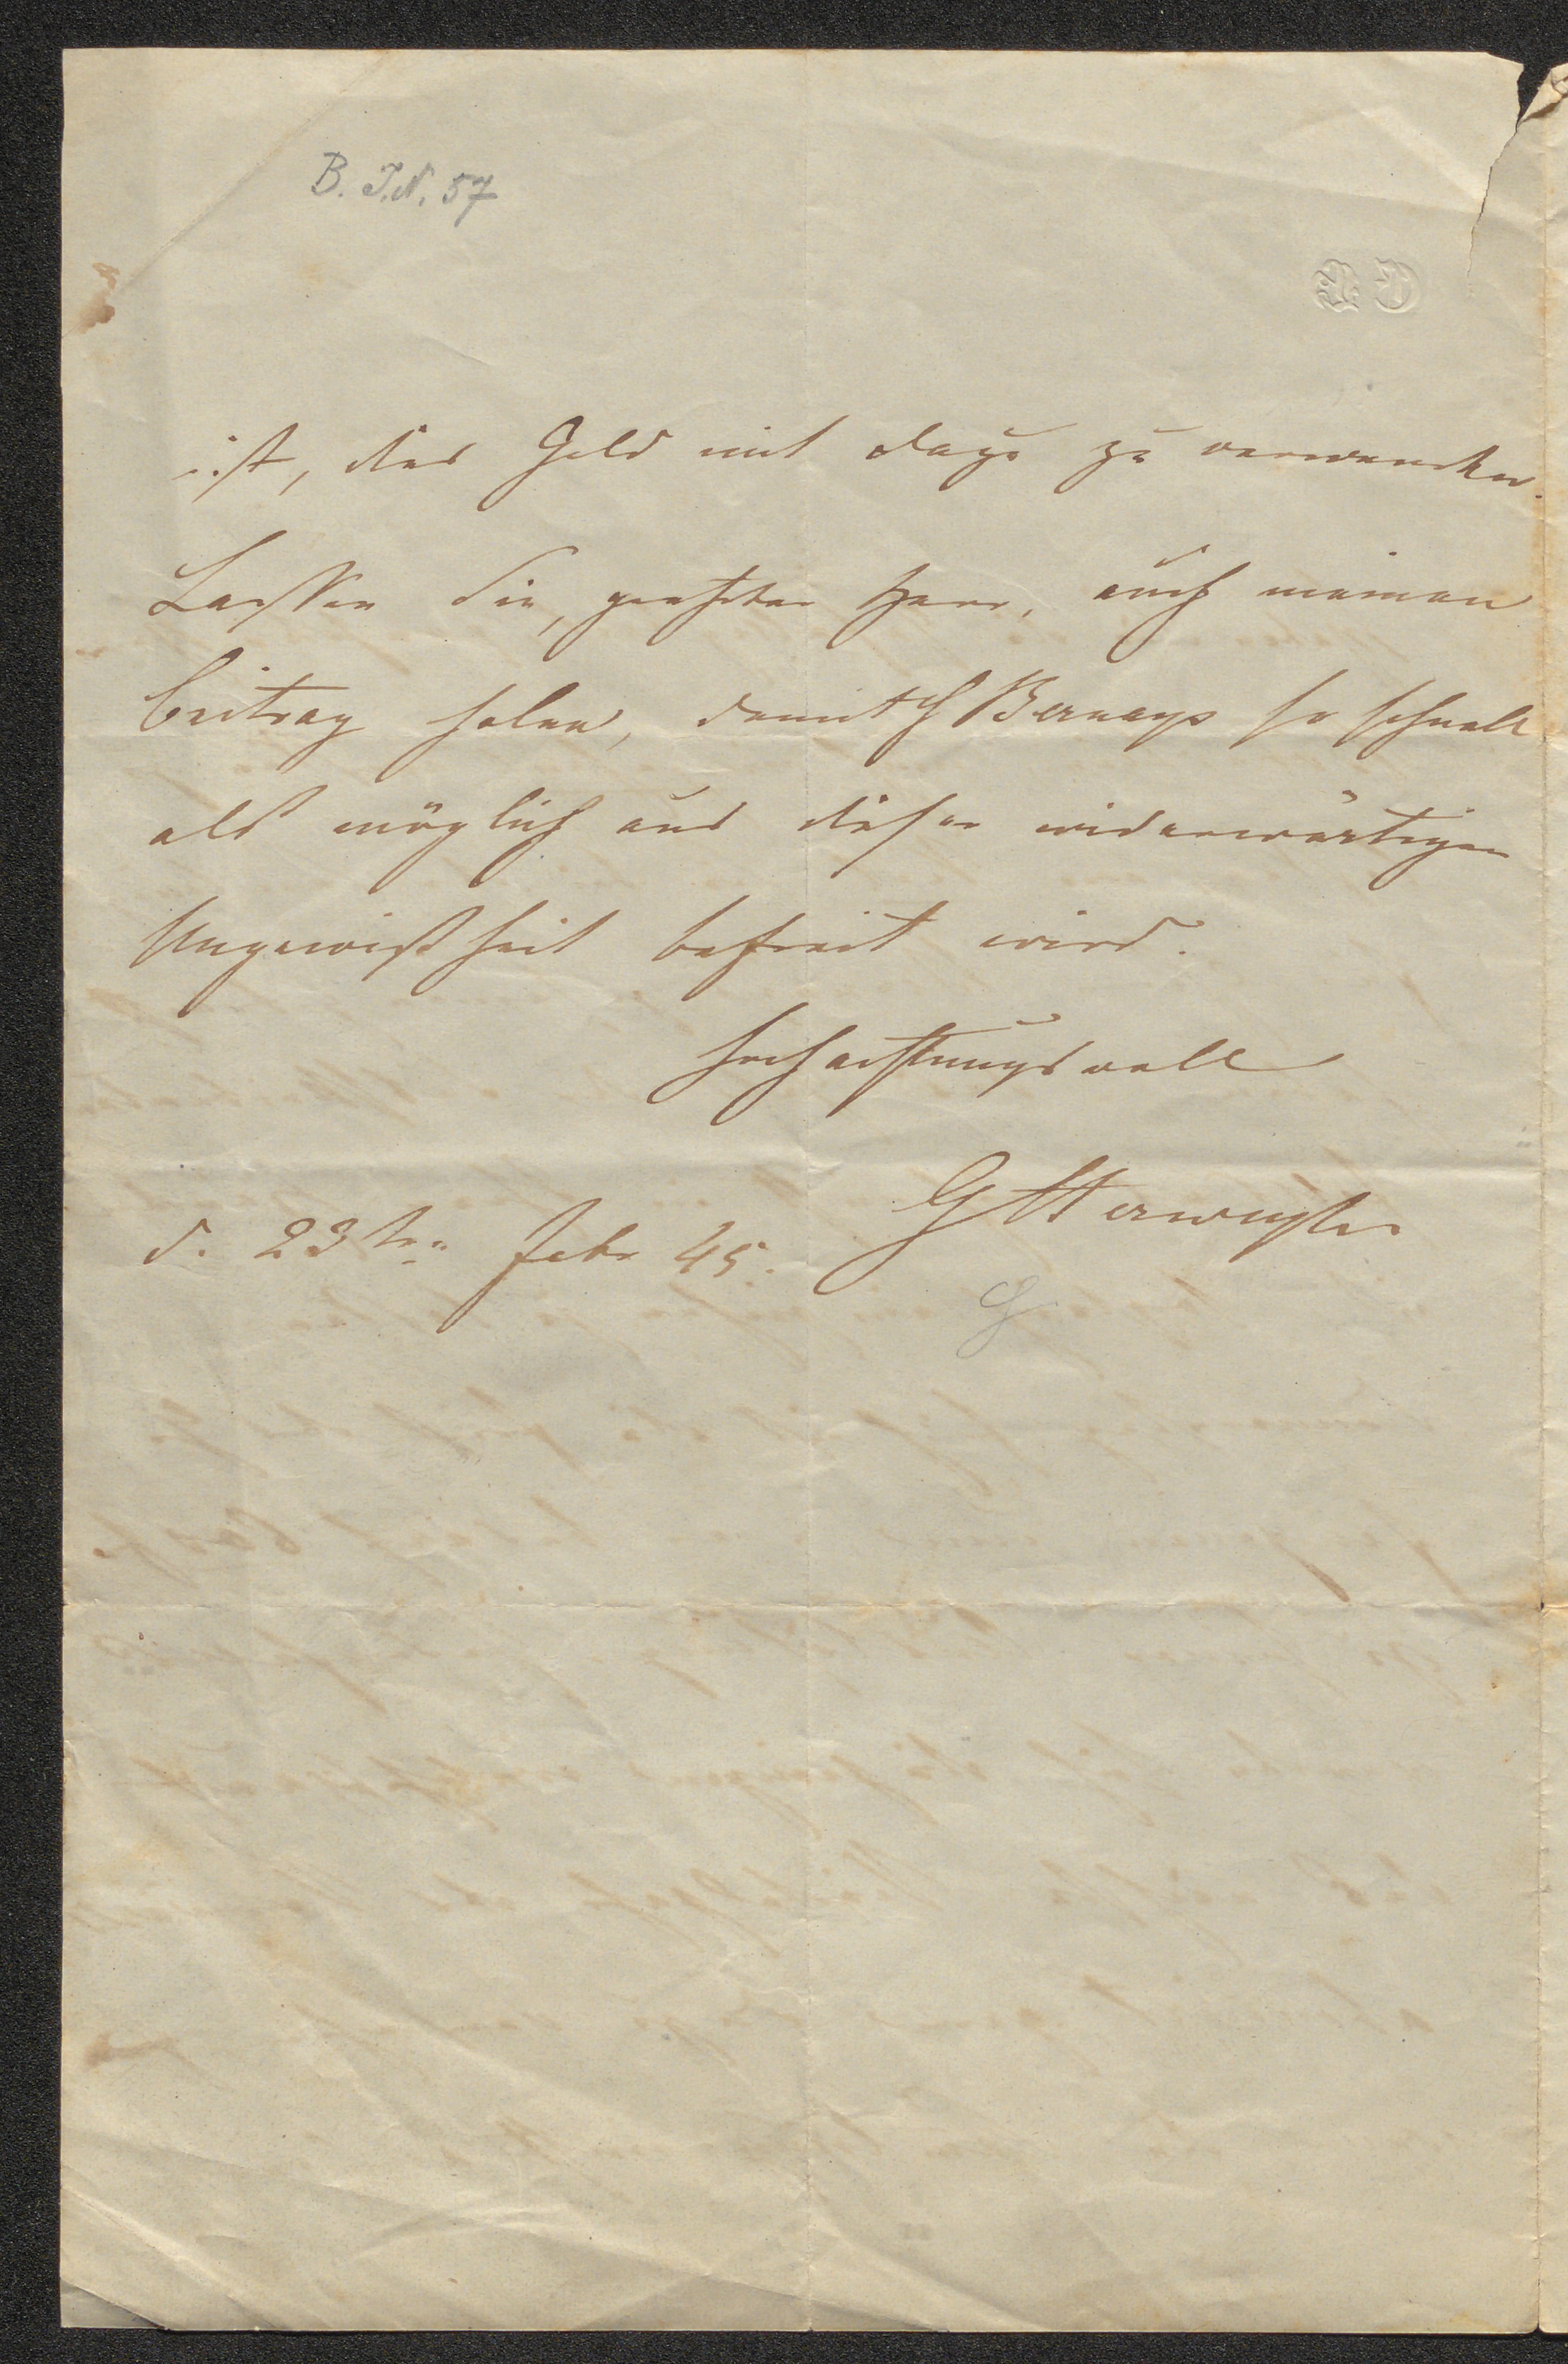 B. T.N. 57
ist, das Geld mit dazu zu verwenden.
Lassen Sie, geehrter Herr, auch meinen
Beitrag holen, damit H Bernays so schnell
als möglich aus dieser widerwärtigen
Ungewißheit befreit wird.
Hochachtungsvoll
d. 23ten Febr 45.